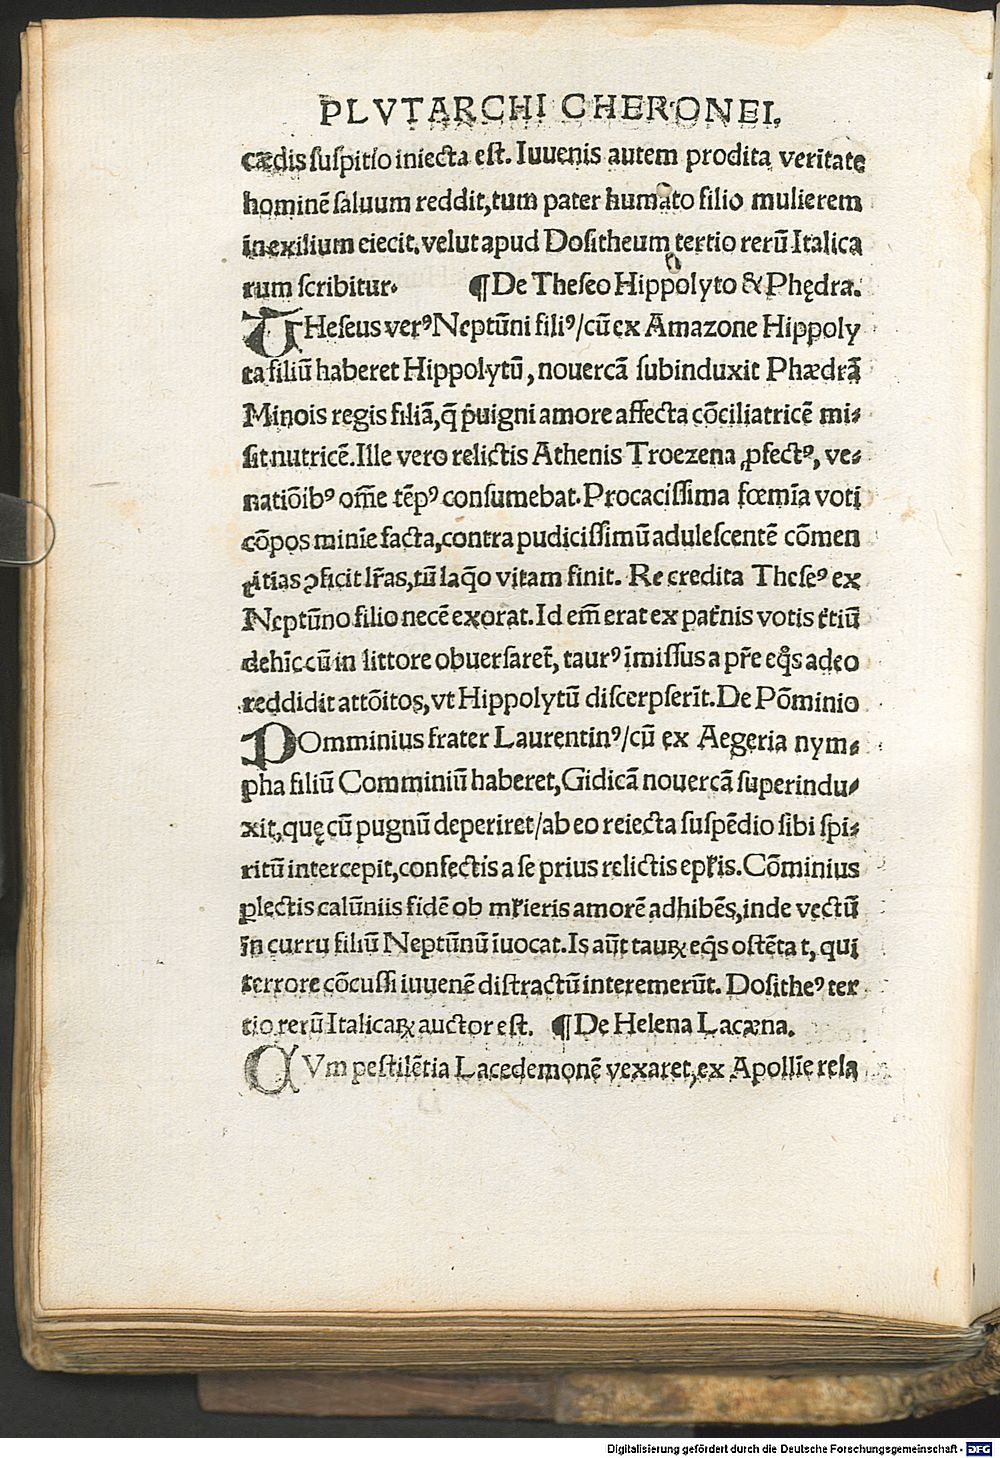 PLVTARCHI CHERONEI.
cædis suspitio iniecta est. Iuuenis autem prodita veritate
hominē saluum reddit, tum pater humato filio mulierem
in exilium eiecit. velut apud Dositheum tertio rerū Italica
rum scribitur. ¶ De Theseo Hippolyto & Phędra.
THeseus verꝰ Neptūni filiꝰ/cū ex Amazone Hippoly
ta filiū haberet Hippolytū, nouercā subinduxit Phædrā
Minois regis filiā, q̄ p̄uigni amore affecta cōciliatricē mi-
sit nutricē. Ille vero relictis Athenis Troezena ꝓfectꝰ, ve-
natiōibꝰ om̄e tēpꝰ consumebat. Procacissima fœmīa voti
cōpos minīe facta, contra pudicissimū adulescentē cōmen
titias ꝯficit lr̄as, tū laq̄o vitam finit. Re credita Theseꝰ ex
Neptūno filio necē exorat. Id em̄ erat ex pat̄nis votis t̄tiū
dehīc cū in littore obuersaret̄, taurꝰ īmissus a pr̄e eq̄s adeo
reddidit attōitos, vt Hippolytū discerpserīt. De Pōminio
POmminius frater Laurentinꝰ/cū ex Aegeria nym-
pha filiū Comminiū haberet, Gidicā nouercā superindu-
xit, quę cū pugnū deperiret/ab eo reiecta suspēdio sibi spi-
ritū intercepit, confectis a se prius relictis epl̄is. Cōminius
ꝑlectis calūniis fidē ob ml̄ieris amorē adhibēs, inde vectū
in curru filiū Neptūnū īuocat. Is aūt tauꝝ eq̄s ostēta t, qui
terrore cōcussi iuuenē distractū interemerūt. Dositheꝰ ter
tio rerū Italicaꝝ auctor est. ¶ De Helena Lacæna.
CVm pestilētia Lacedemonē vexaret, ex Apollīe rela
Digitalisierung gefördert durch die Deutsche Forschungsgemeinschaft - DFG